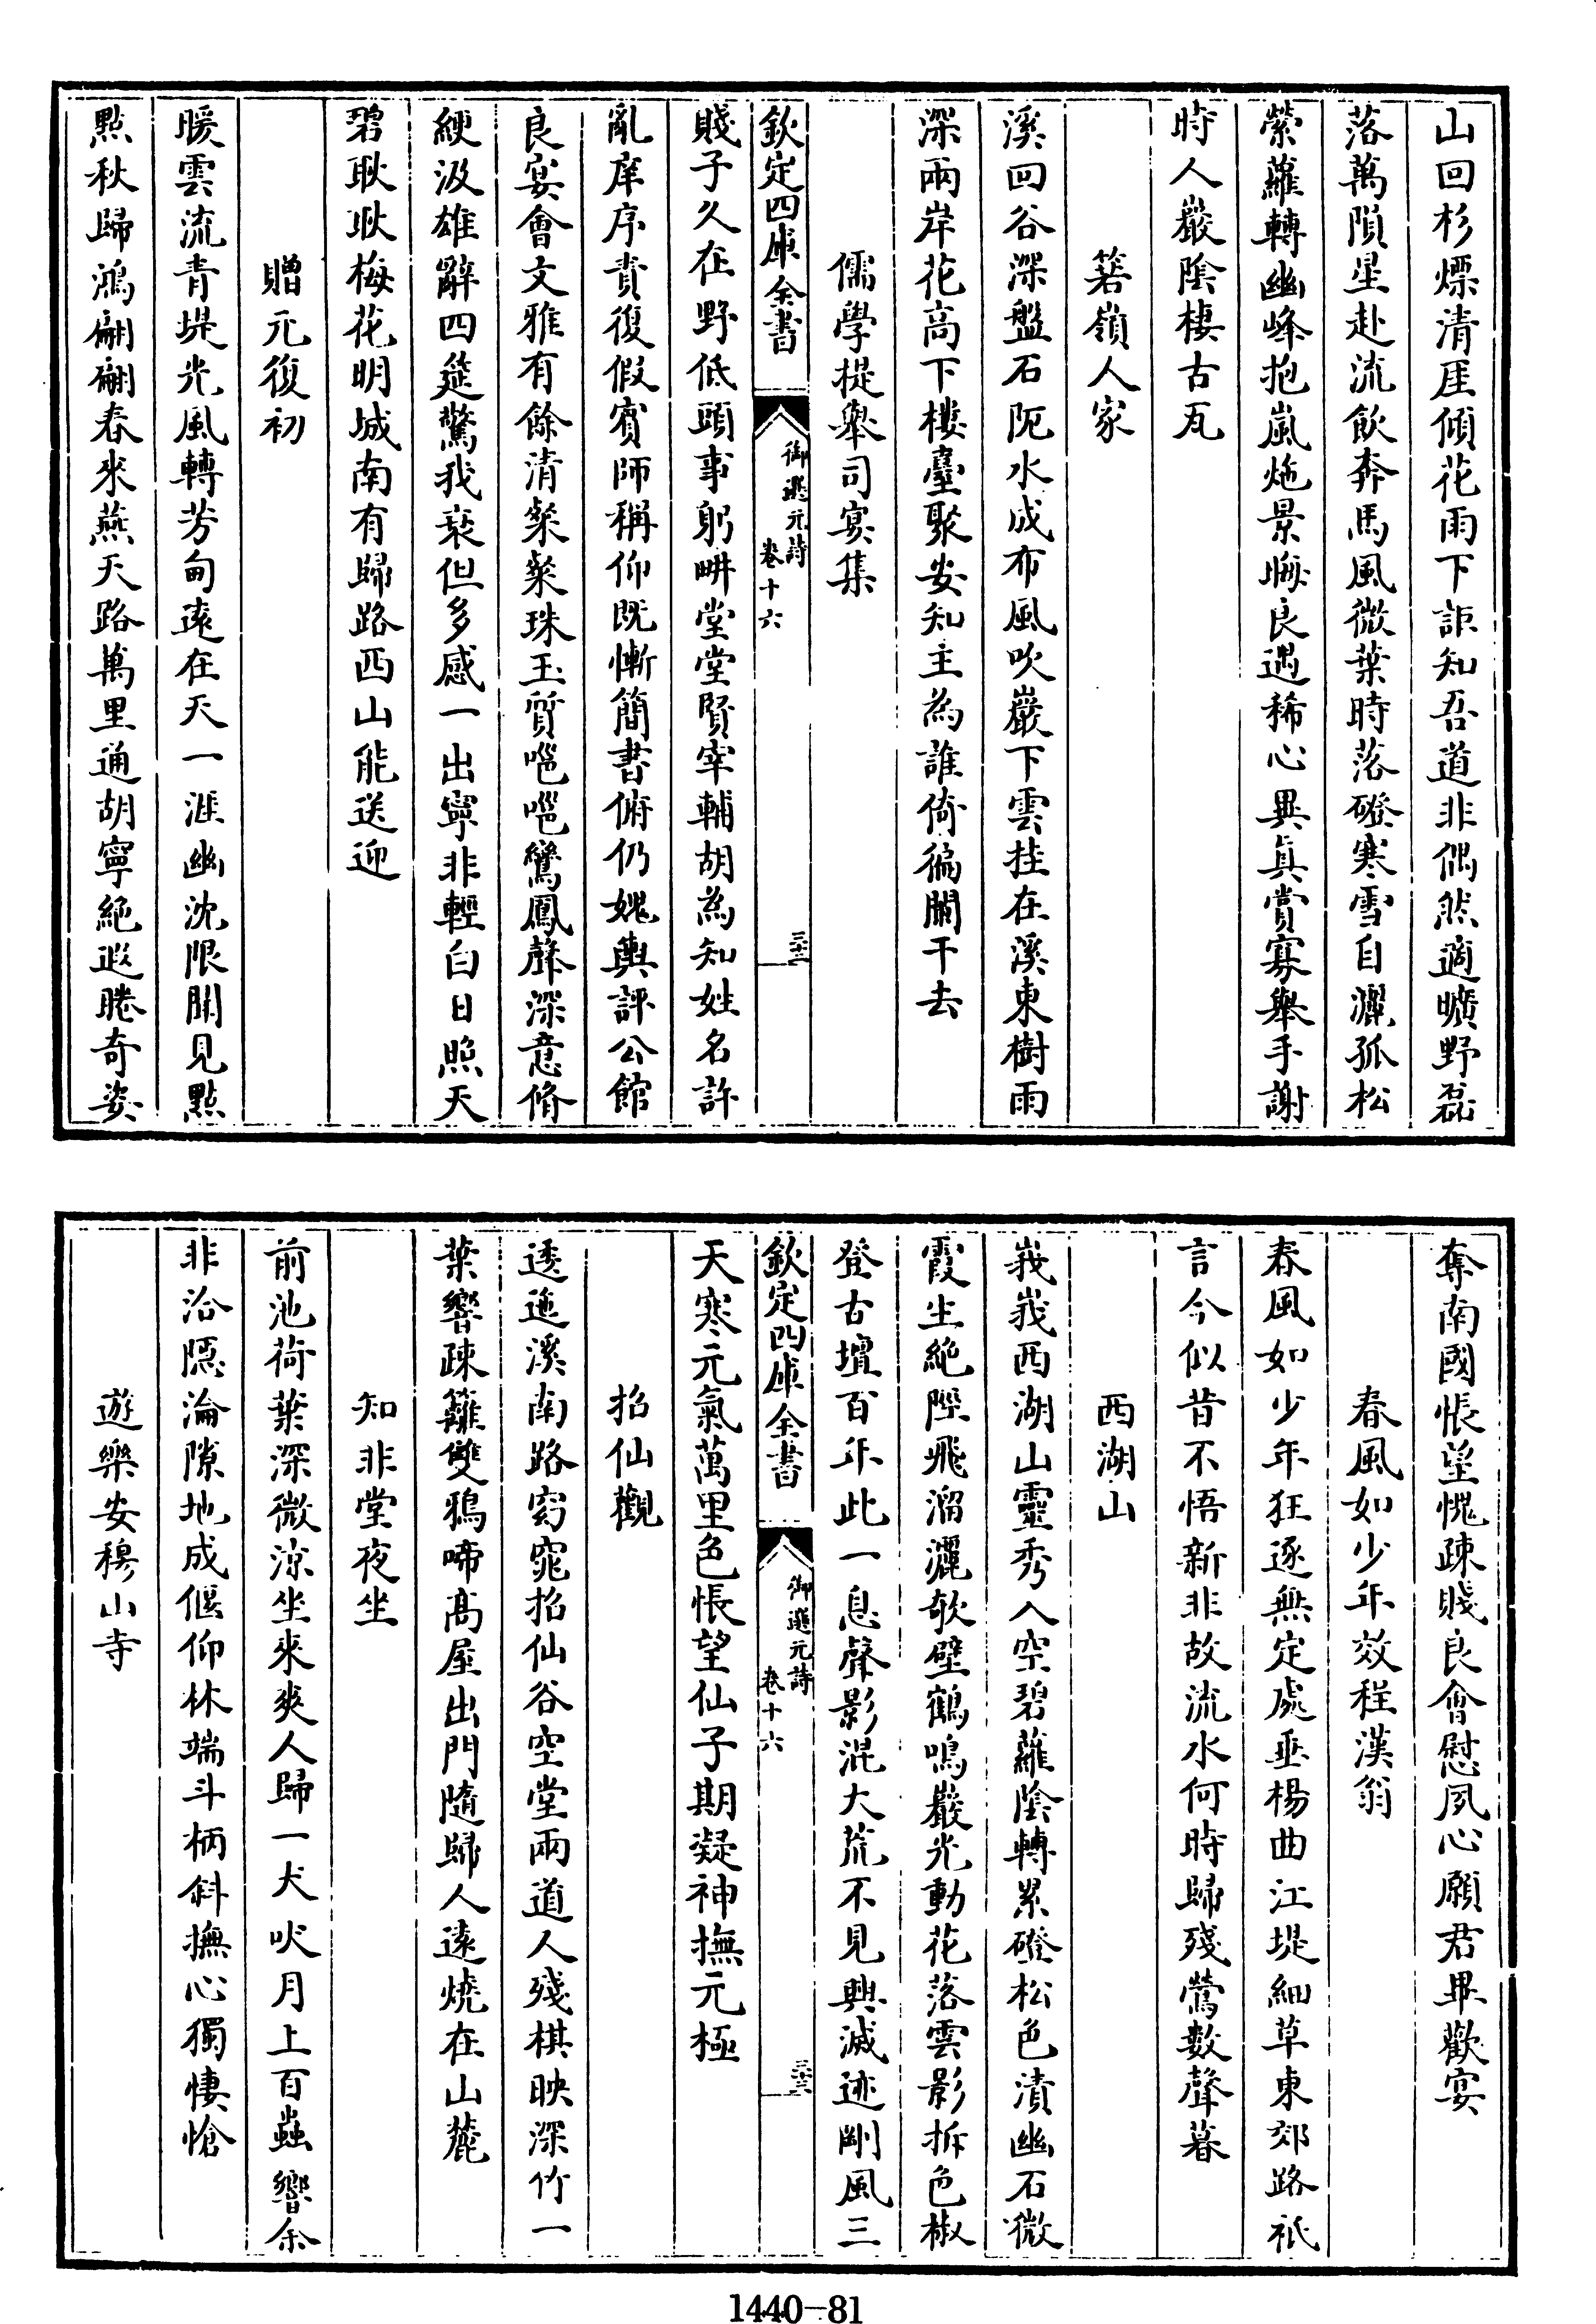 山回杉煙清厓傾花雨下詎知吾道非偶然適曠野磊
落萬隕星赴流飲奔馬風微葉時落磴寒雪自灑孤松
縈蘿轉幽峰抱嵐炧景晦良遇稀心異真賞寡舉手謝
時人巖陰棲古瓦
箬嶺人家
溪回谷深盤石阨水成布風吹巖下雲挂在溪東樹雨
深兩岸花高下樓臺聚安知主為誰倚徧闌干去
儒學提舉司宴集
欽定四庫全書
御選元詩
卷十六
三十二
賤子久在野低頭事躬畊堂堂賢宰輔胡為知姓名許
亂庠序責復假賓師稱仰既慚簡書俯仍媿輿評公館
良宴會文雅有餘清粲粲珠玉質嗈嗈鸞鳳聲深意脩
綆汲雄辭四筵驚我衰但多感一出寧非輕白日照天
碧耿耿梅花明城南有歸路西山能送迎
贈元復初
暖雲流青堤光風轉芳甸遠在天一涯幽沈限聞見點
點秋歸鴻翩翩春來燕天路萬里通胡寧絶遐睠奇姿
奪南國悵望愧疎賤良會慰夙心願君畢歡宴
春風如少年效程漢翁
春風如少年狂逐無定處垂楊曲江堤細草東郊路祇
言今似昔不悟新非故流水何時歸殘鶯數聲暮
西湖山
峩峩西湖山靈秀入空碧蘿陰轉累磴松色漬幽石微
霞生絶陘飛溜灑欹壁鶴鳴巖光動花落雲影拆色椒
登古壇百年此一息聲影混大荒不見興滅迹剛風三
欽定四庫全書
御選元詩
卷十六
三十三
天寒元氣萬里色悵望仙子期凝神撫元極
招仙觀
逶迤溪南路窈窕招仙谷空堂兩道人殘棋映深竹一
葉響疎籬雙鴉啼高屋出門隨歸人遠燒在山麓
知非堂夜坐
前池荷葉深微涼坐來爽人歸一犬吠月上百蟲響余
非沿隱淪隙地成偃仰林端斗柄斜撫心獨悽愴
遊樂安穆山寺
1440-81